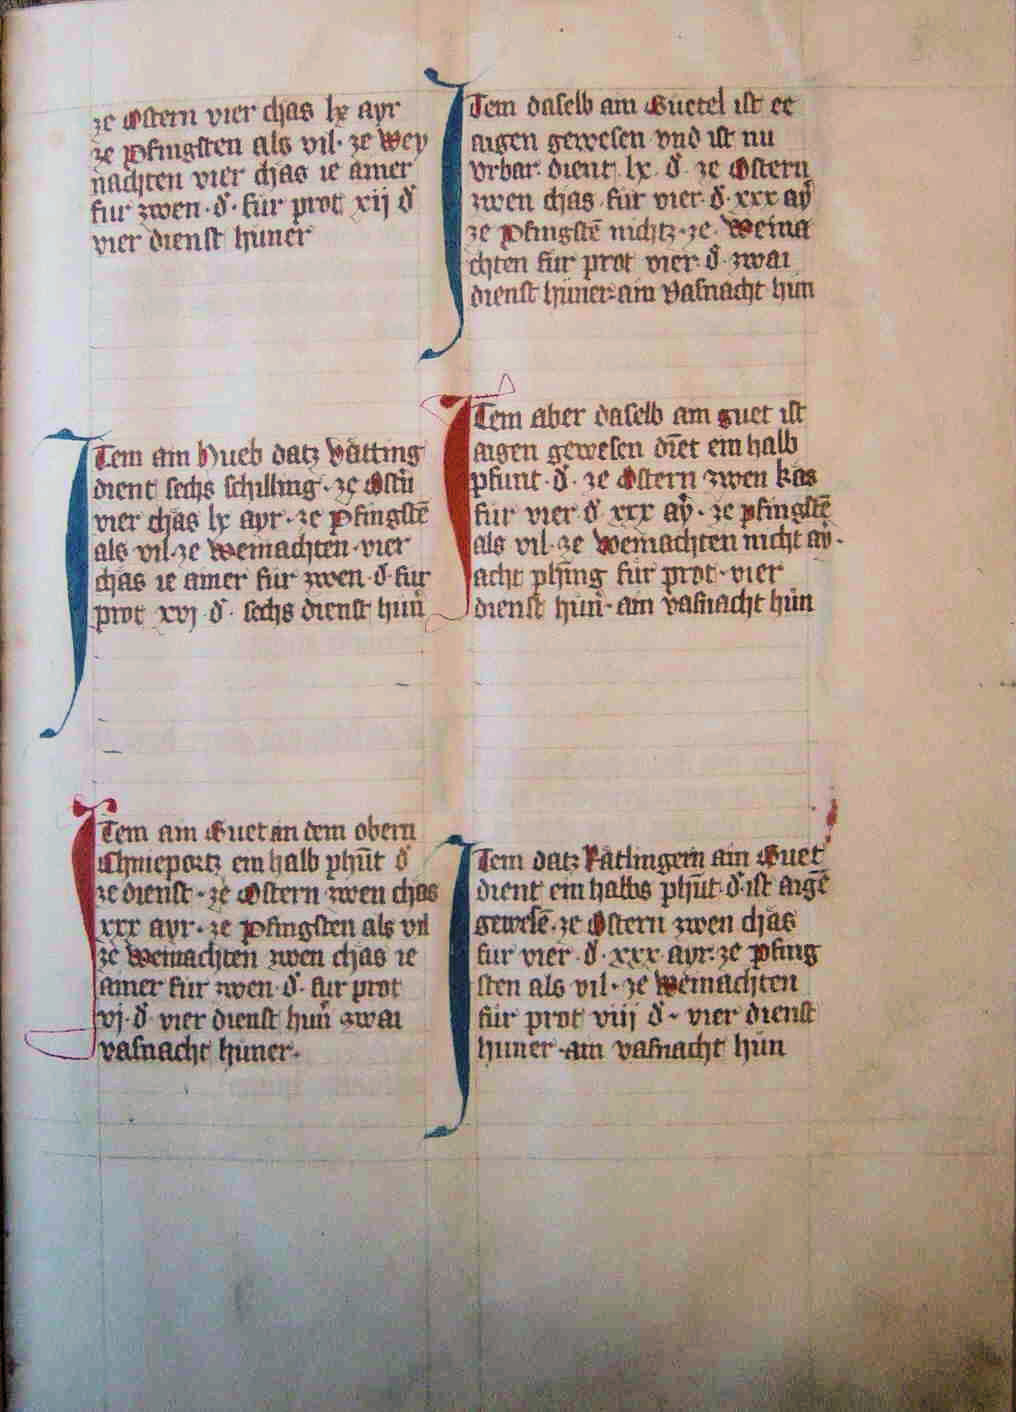 ze Ostern vier chas lx ayr
ze Pfingsten als vil · ze Wey
nachten vier chas ie ainer
fur zwen · d · fur prot xij d
vier dienst huner
Item am Hueb datz Vatting
dient sechs schilling · ze Ostn̄
vier chas lx ayr · ze Pfingstē
als vil · ze Weinachten · vier
chas ie ainer fur zwen · d · fur
prot xvj · d · sechs dienst hun̄
Item am Guet an dem obern
ein halb phūt d
ze dienst · ze Ostern zwen chas
xxx ayr · ze Pfingsten als vil
ze Weinachten zwen chas ie
ainer fur zwen · d · fur prot
vj · d · vier dienst hun̄ zwai
vasnacht huner ·
Item daselb am Guetel ist ee
aigen gewesen vnd ist nu
vrbar · dient lx · d · ze Ostern
zwen chas fur vier · d · xxx aẏ
ze Pfingstē nichtz · ze · Weina
chten fur prot vier · d · zwai
dienst huner · am Vasnacht hun
Item aber daselb am guet ist
aigen gewesen diēt ein halb
pfunt · d · ze Ostern zwen kas
fur vier d xxx aẏ · ze pfingstē
als vil · ze Weinachten nicht aẏ ·
acht phīng fur prot · vier
dienst hun̄ · am vasnacht hun
Item datz Ratlingern am Guet
dient ein halbs phūt · d · ist aigē
gewesē · ze Ostern zwen chas
fur vier · d · xxx ayr · ze Pfing
sten als vil · ze Weinachten
fur prot viij d · vier dienst
huner · am vasnacht hun